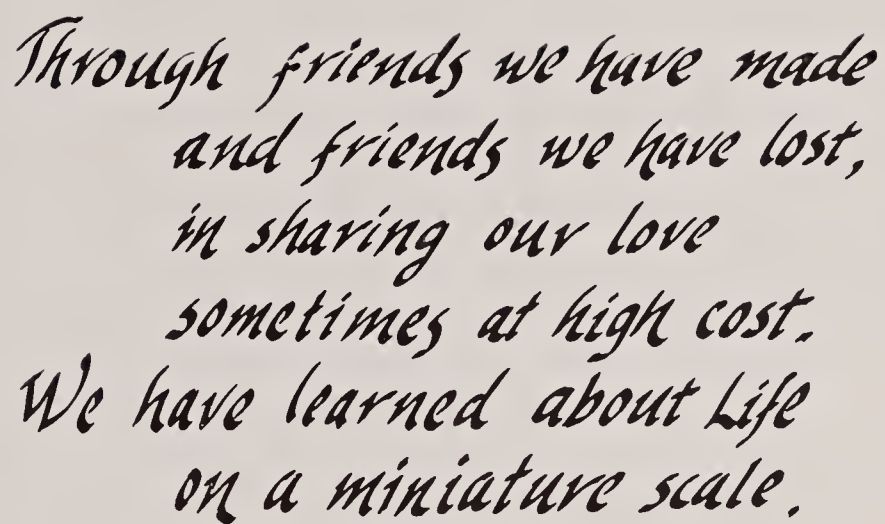 Through friends we have made
and friends we have lost,
in sharing our love
sometimes at high cost.
We have learned about Life
on a miniature scale.